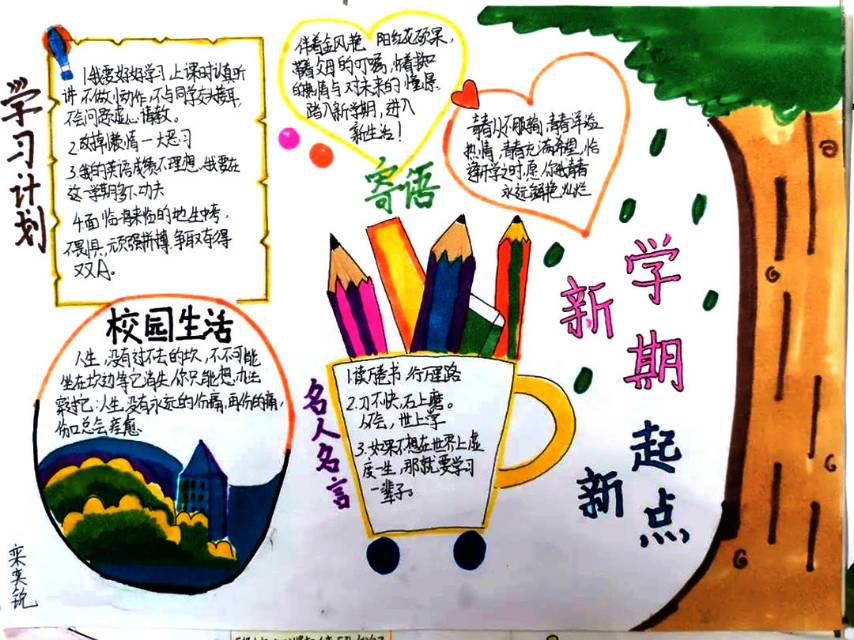 学习计划
1.我要好好学习,上课时认真听
讲,不做小动作,不与同学交头接耳,
不会问题虚心请教。
2.改掉懒惰一大恶习
3.我的英语成绩不理想,我要在
这一学期多下功夫
4.面临将来临的地生中考,
不畏惧,顽强拼搏,争取夺得
双A。
校园生活
人生,没有过不去的坎,不可能
坐在坎边等它消失,你只能想办法
穿过它;人生,没有永远的伤痛,再伤的痛,
伤口总会痊愈
栾奕锐
伴着金风艳阳红花硕果,
带着父母的叮嘱,怀着
的热情与对未来的憧憬,
踏入新学期,进入
新生活!
寄语
青春从不服输,青春洋溢
热情,青春充满希望,恰
新学之时,愿你我青春
永远鲜艳灿烂
名人名言
1.读万卷书 行万里路
2.刀不快,石上磨。
人不会,世上学
3.如果不想在世界上虚
度一生,那就要学习
一辈子。
新学期
新起点